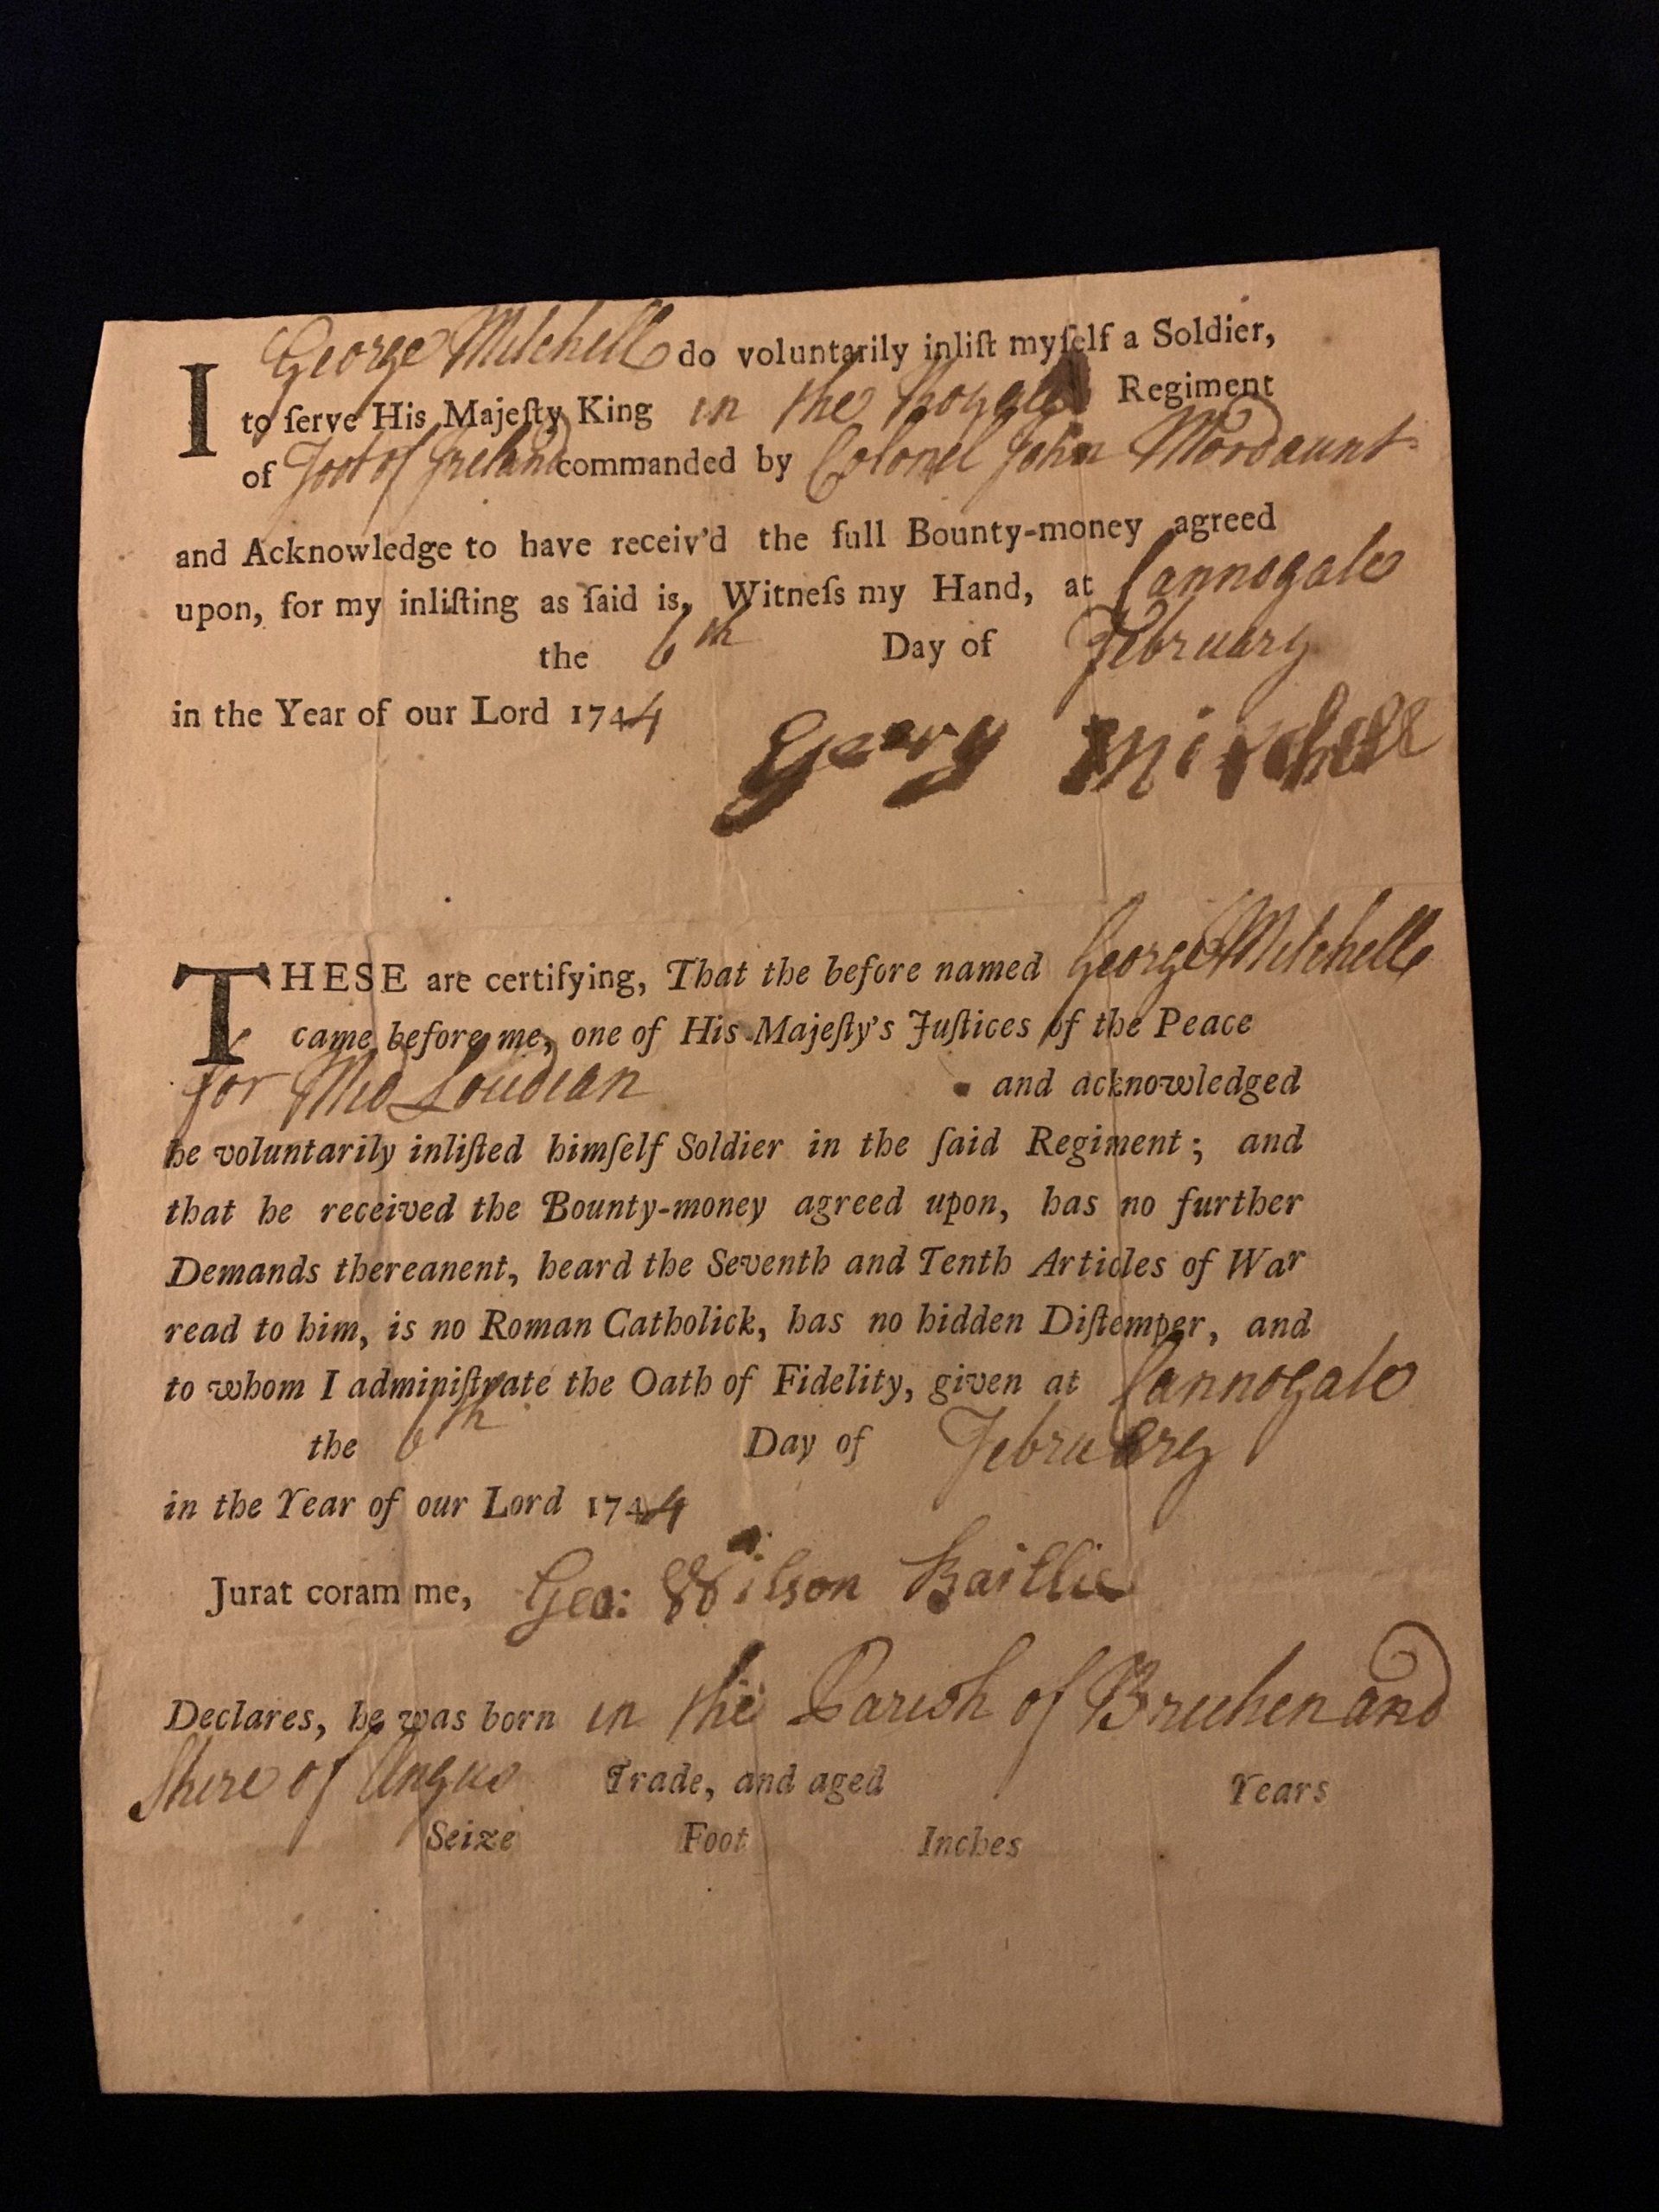 I George Mitchell do voluntarily inliſt myſelf a Soldier,
to ſerve His Majeſty King in the Royall Regiment
of Foot of Ireland commanded by Colonel John Mordaunt
and Acknowledge to have receiv'd the full Bounty-money agreed
upon, for my inliſting as ſaid is, Witneſs my Hand, at Cannogate
the 6th Day of February
in the Year of our Lord 1744
Georg Mitchell
THESE are certifying, That the before named George Mitchell
came before me, one of His Majeſty's Juſtices of the Peace
for Mid Loudian and acknowledged
he voluntarily inliſted himſelf Soldier in the ſaid Regiment; and
that he received the Bounty-money agreed upon, has no further
Demands thereanent, heard the Seventh and Tenth Articles of War
read to him, is no Roman Catholick, has no hidden Diſtemper, and
to whom I adminiſtrate the Oath of Fidelity, given at Cannogate
the 6th Day of February
in the Year of our Lord 1744
Jurat coram me, Geo: Wilson Baillie
Declares, he was born in the Parish of Briehen and
Shire of Angus Trade, and aged Years
Seize Foot Inches